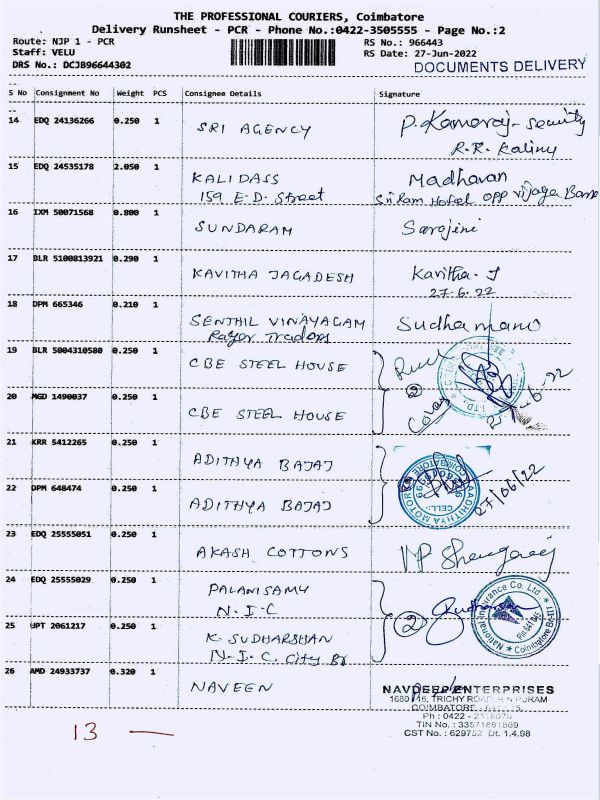 THE PROFESSIONAL COURIERS, Coimbatore
Delivery Runsheet - PCR - Phone No.:0422-3505555 - Page No.:2
Route: NJP 1 - PCR
Staff: VELU
DRS No.: DCJB96644302
RS No.: 966443
RS Date: 27-Jun-2022
DOCUMENTS DELIVERY
S No Consignment No Weight PCS Consignee Details Signature
14 EDQ 24136266 0.250 1 SRI AGENCY P. Kamaraj - Security
R.R. Kalinu
15 EDQ 24535178 2.050 1 KALIDASS Madhavan
159 E.D. Street Sri Ram Hotel opp Vijaya Bank
16 IXM 50071568 0.800 1 SUNDARAM Sarojini
17 BLR 5100813921 0.290 1 KAVITHA JAGADESH Kavitha - J
27-6-22
18 DPM 665346 0.210 1 SENTHIL VINAYAGAM Sudha mano
Rayer Traders
19 BLR 5004310580 0.250 1 CBE STEEL HOUSE
20 MGD 1490037 0.250 1 CBE STEEL HOUSE
2
27-6-22
21 KRR 5412265 0.250 1 ADITHYA BAJAJ
22 DPM 648474 0.250 1 ADITHYA BAJAJ
27/06/22
23 EDQ 25555051 0.250 1 AKASH COTTONS
24 EDQ 25555029 0.250 1 PALANISAMY
N.I.C
25 UPT 2061217 0.250 1 K. SUDHARSHAN
N.I.C. City Br
2
National Insurance Co. Ltd.
26 AMD 24933737 0.320 1 NAVEEN
NAVDEEP ENTERPRISES
1680 TRICHY ROAD
COIMBATORE
Ph : 0422 -
TIN No. :
CST No. : 629752 Dt. 1.4.98
13 —